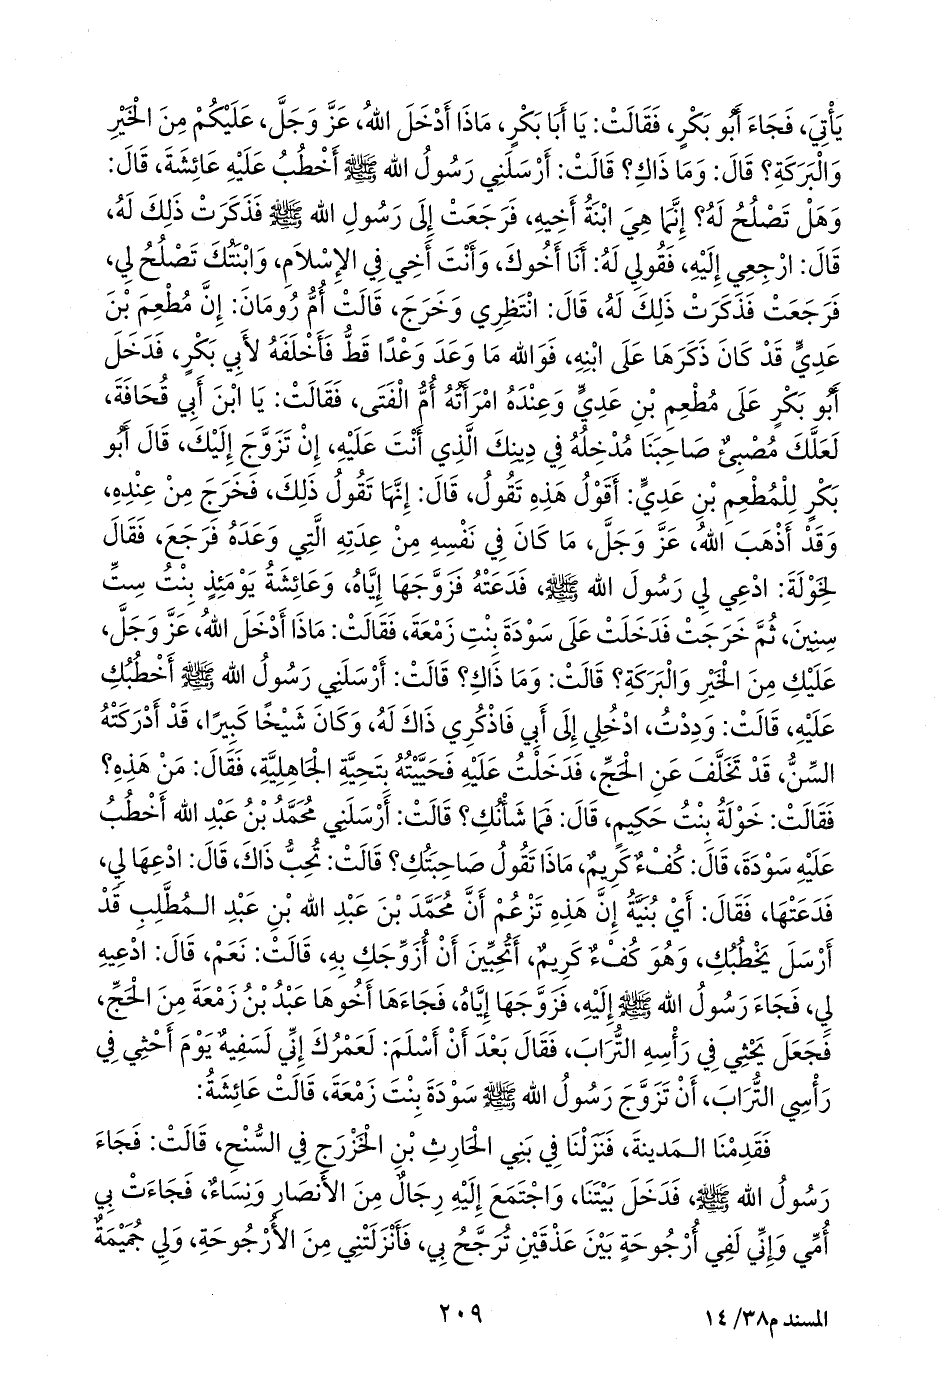 يَأْتِيَ، فَجَاءَ أَبُو بَكْرٍ، فَقَالَتْ: يَا أَبَا بَكْرٍ، مَاذَا أَدْخَلَ اللهُ، عَزَّ وَجَلَّ، عَلَيْكُمْ مِنَ الْخَيْرِ
وَالْبَرَكَةِ؟ قَالَ: وَمَا ذَاكِ؟ قَالَتْ: أَرْسَلَنِي رَسُولُ اللهِ ﷺ أَخْطُبُ عَلَيْهِ عَائِشَةَ، قَالَ:
وَهَلْ تَصْلُحُ لَهُ؟ إِنَّمَا هِيَ ابْنَةُ أَخِيهِ، فَرَجَعَتْ إِلَى رَسُولِ اللهِ ﷺ فَذَكَرَتْ ذَلِكَ لَهُ،
قَالَ: ارْجِعِي إِلَيْهِ، فَقُولِي لَهُ: أَنَا أَخُوكَ، وَأَنْتَ أَخِي فِي الإِسْلَامِ، وَابْنَتُكَ تَصْلُحُ لِي،
فَرَجَعَتْ فَذَكَرَتْ ذَلِكَ لَهُ، قَالَ: انْتَظِرِي وَخَرَجَ، قَالَتْ أُمُّ رُومَانَ: إِنَّ مُطْعِمَ بْنَ
عَدِيٍّ قَدْ كَانَ ذَكَرَهَا عَلَى ابْنِهِ، فَوَاللهِ مَا وَعَدَ وَعْدًا قَطُّ فَأَخْلَفَهُ لأَبِي بَكْرٍ، فَدَخَلَ
أَبُو بَكْرٍ عَلَى مُطْعِمِ بْنِ عَدِيٍّ وَعِنْدَهُ امْرَأَتُهُ أُمُّ الْفَتَى، فَقَالَتْ: يَا ابْنَ أَبِي قُحَافَةَ،
لَعَلَّكَ مُصْبِئٌ صَاحِبَنَا مُدْخِلُهُ فِي دِينِكَ الَّذِي أَنْتَ عَلَيْهِ، إِنْ تَزَوَّجَ إِلَيْكَ، قَالَ أَبُو
بَكْرٍ لِلْمُطْعِمِ بْنِ عَدِيٍّ: أَقَوْلُ هَذِهِ تَقُولُ، قَالَ: إِنَّهَا تَقُولُ ذَلِكَ، فَخَرَجَ مِنْ عِنْدِهِ،
وَقَدْ أَذْهَبَ اللهُ، عَزَّ وَجَلَّ، مَا كَانَ فِي نَفْسِهِ مِنْ عِدَتِهِ الَّتِي وَعَدَهُ فَرَجَعَ، فَقَالَ
لِخَوْلَةَ: ادْعِي لِي رَسُولَ اللهِ ﷺ، فَدَعَتْهُ فَزَوَّجَهَا إِيَّاهُ، وَعَائِشَةُ يَوْمَئِذٍ بِنْتُ سِتِّ
سِنِينَ، ثُمَّ خَرَجَتْ فَدَخَلَتْ عَلَى سَوْدَةَ بِنْتِ زَمْعَةَ، فَقَالَتْ: مَاذَا أَدْخَلَ اللهُ، عَزَّ وَجَلَّ،
عَلَيْكِ مِنَ الْخَيْرِ وَالْبَرَكَةِ؟ قَالَتْ: وَمَا ذَاكِ؟ قَالَتْ: أَرْسَلَنِي رَسُولُ اللهِ ﷺ أَخْطُبُكِ
عَلَيْهِ، قَالَتْ: وَدِدْتُ، ادْخُلِي إِلَى أَبِي فَاذْكُرِي ذَاكَ لَهُ، وَكَانَ شَيْخًا كَبِيرًا، قَدْ أَدْرَكَتْهُ
السِّنُّ، قَدْ تَخَلَّفَ عَنِ الْحَجِّ، فَدَخَلْتُ عَلَيْهِ فَحَيَّيْتُهُ بِتَحِيَّةِ الْجَاهِلِيَّةِ، فَقَالَ: مَنْ هَذِهِ؟
فَقَالَتْ: خَوْلَةُ بِنْتُ حَكِيمٍ، قَالَ: فَمَا شَأْنُكِ؟ قَالَتْ: أَرْسَلَنِي مُحَمَّدُ بْنُ عَبْدِ اللهِ أَخْطُبُ
عَلَيْهِ سَوْدَةَ، قَالَ: كُفْءٌ كَرِيمٌ، مَاذَا تَقُولُ صَاحِبَتُكِ؟ قَالَتْ: تُحِبُّ ذَاكَ، قَالَ: ادْعِهَا لِي،
فَدَعَتْهَا، فَقَالَ: أَيْ بُنَيَّةُ إِنَّ هَذِهِ تَزْعُمُ أَنَّ مُحَمَّدَ بْنَ عَبْدِ اللهِ بْنِ عَبْدِ الـمُطَّلِبِ قَدْ
أَرْسَلَ يَخْطُبُكِ، وَهُوَ كُفْءٌ كَرِيمٌ، أَتُحِبِّينَ أَنْ أُزَوِّجَكِ بِهِ، قَالَتْ: نَعَمْ، قَالَ: ادْعِيهِ
لِي، فَجَاءَ رَسُولُ اللهِ ﷺ إِلَيْهِ، فَزَوَّجَهَا إِيَّاهُ، فَجَاءَهَا أَخُوهَا عَبْدُ بْنُ زَمْعَةَ مِنَ الْحَجِّ،
فَجَعَلَ يَحْثِي فِي رَأْسِهِ التُّرَابَ، فَقَالَ بَعْدَ أَنْ أَسْلَمَ: لَعَمْرُكَ إِنِّي لَسَفِيهٌ يَوْمَ أَحْثِي فِي
رَأْسِي التُّرَابَ، أَنْ تَزَوَّجَ رَسُولُ اللهِ ﷺ سَوْدَةَ بِنْتَ زَمْعَةَ، قَالَتْ عَائِشَةُ:
فَقَدِمْنَا الـمَدِينَةَ، فَنَزَلْنَا فِي بَنِي الْحَارِثِ بْنِ الْخَزْرَجِ فِي السُّنْحِ، قَالَتْ: فَجَاءَ
رَسُولُ اللهِ ﷺ، فَدَخَلَ بَيْتَنَا، وَاجْتَمَعَ إِلَيْهِ رِجَالٌ مِنَ الأَنْصَارِ وَنِسَاءٌ، فَجَاءَتْ بِي
أُمِّي وَإِنِّي لَفِي أُرْجُوحَةٍ بَيْنَ عَذْقَيْنِ تُرَجَّحُ بِي، فَأَنْزَلَتْنِي مِنَ الأُرْجُوحَةِ، وَلِي جُمَيْمَةٌ
المسند م٣٨/ ١٤
٢٠٩